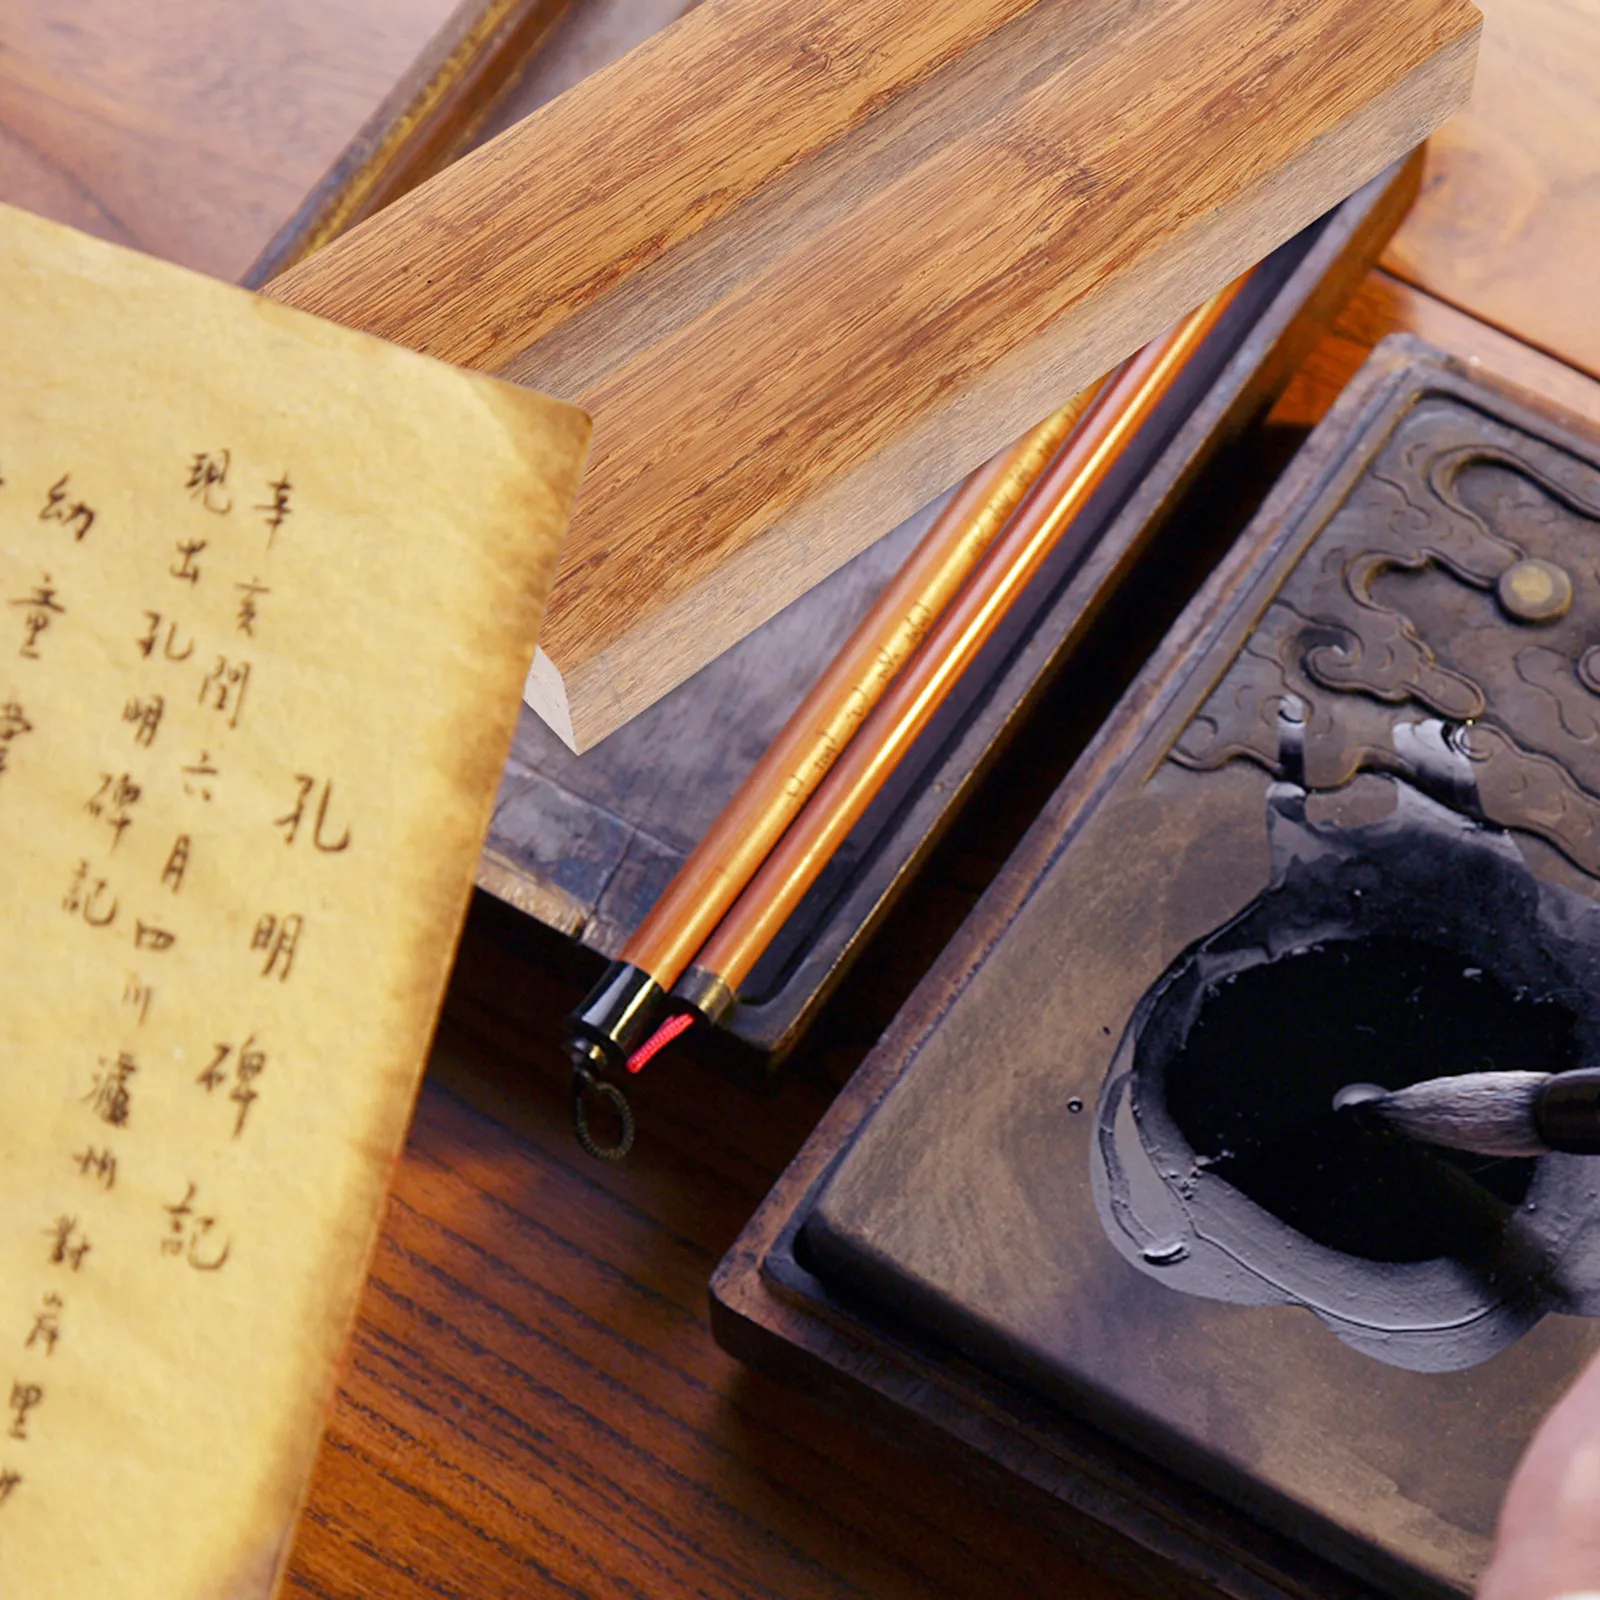 孔明碑記
辛亥閏六月四川瀘州對岸里
現出孔明碑記
幼童掌